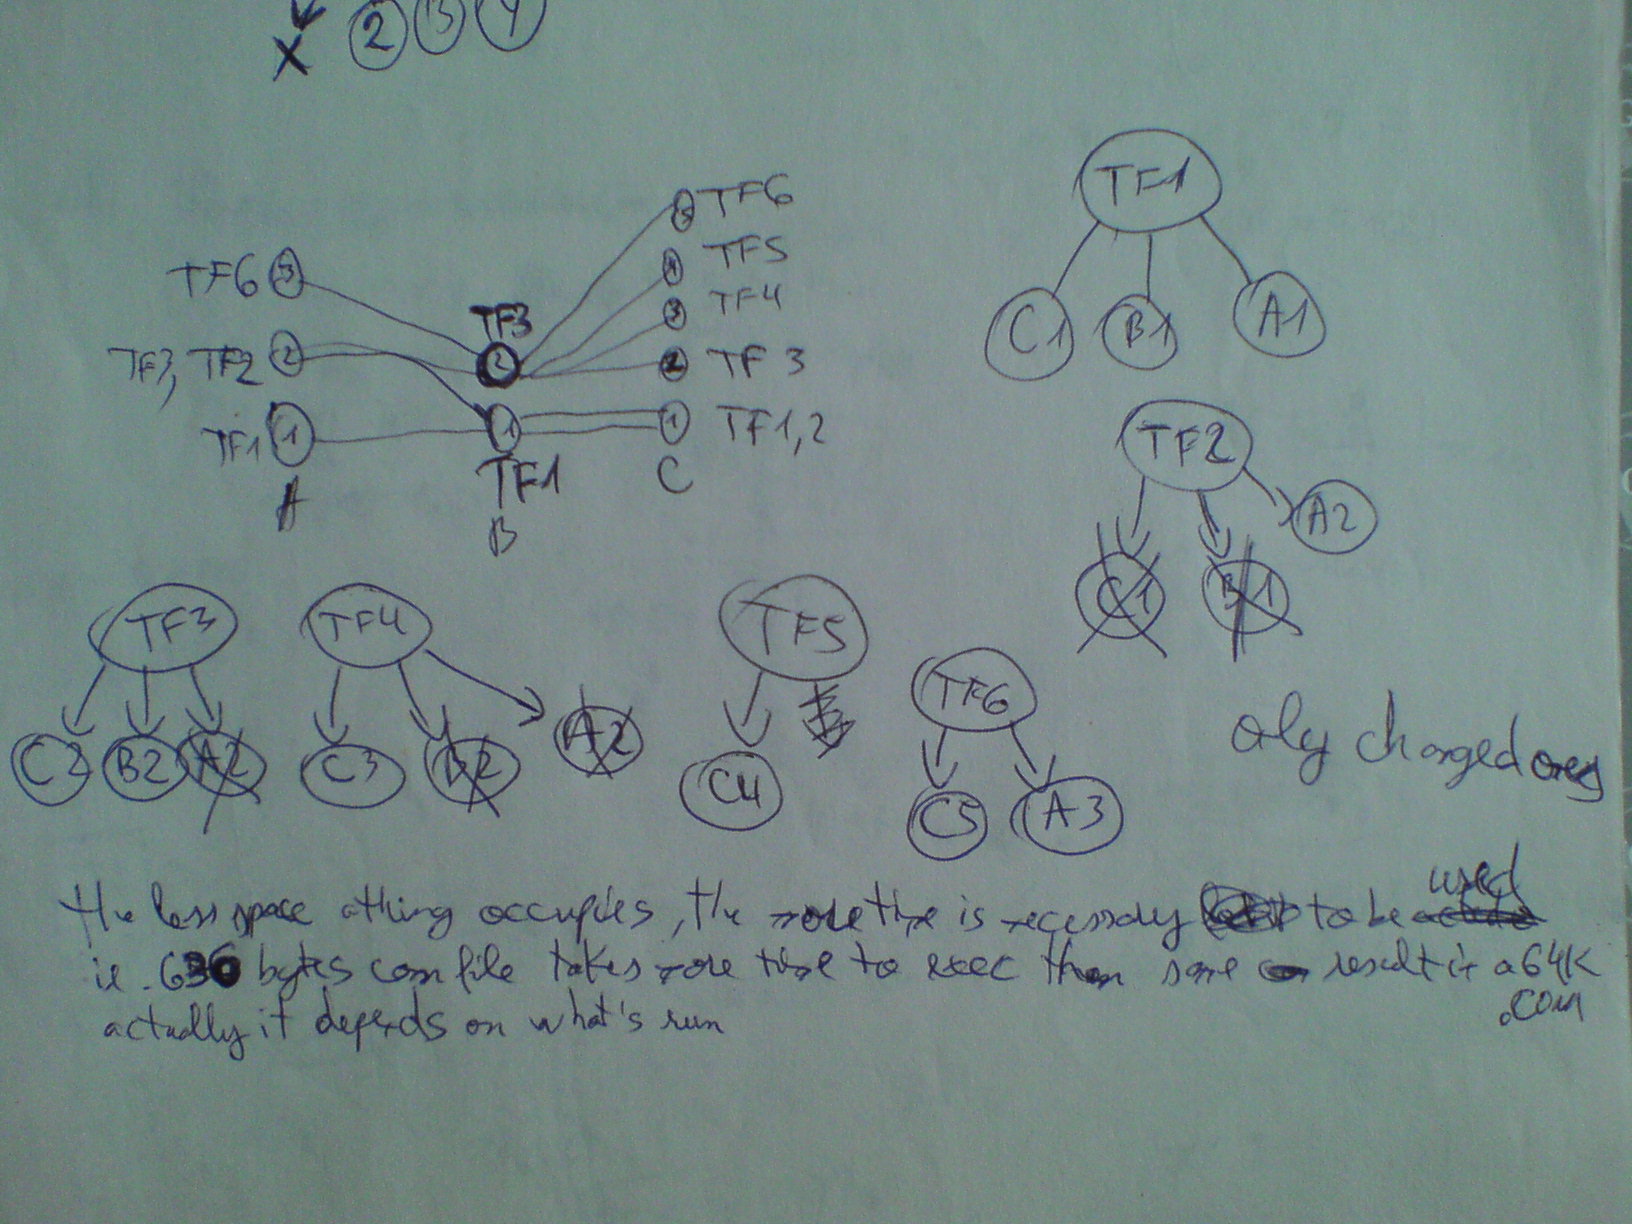 X 2 3 4
TF1
C1 B1 A1
TF6 3
TF3, TF2 2
TF1 1
A
TF3
2
1
TF1
B
5 TF6
4 TF5
3 TF4
2 TF3
1 TF1,2
C
TF2
C1 B1 A2
TF3
C2 B2 A2
TF4
C3 B2 A2
TF5
C4
TF6
C5 A3
oly changed ones
the less space a thing occupies, the more time is necessary to be used
ie. 636 bytes com file takes more time to exec than same result in a 64K
.com
actually it depends on what's run